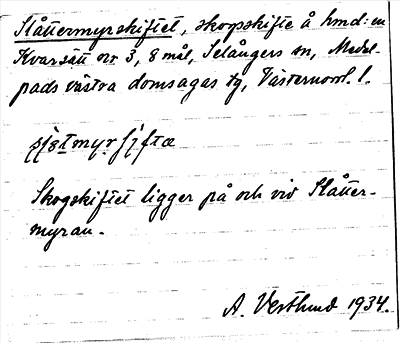 Slåttermyrskiftet, skogsskifte å hmd: en
Kvarsätt nr 3, 8 mål, Selångers sn, Medel-
pads västra domsagas tg, Västernorrl. l.
Skogskiftet ligger på och vid Slåtter-
myran.
A. Vestlund 1934.